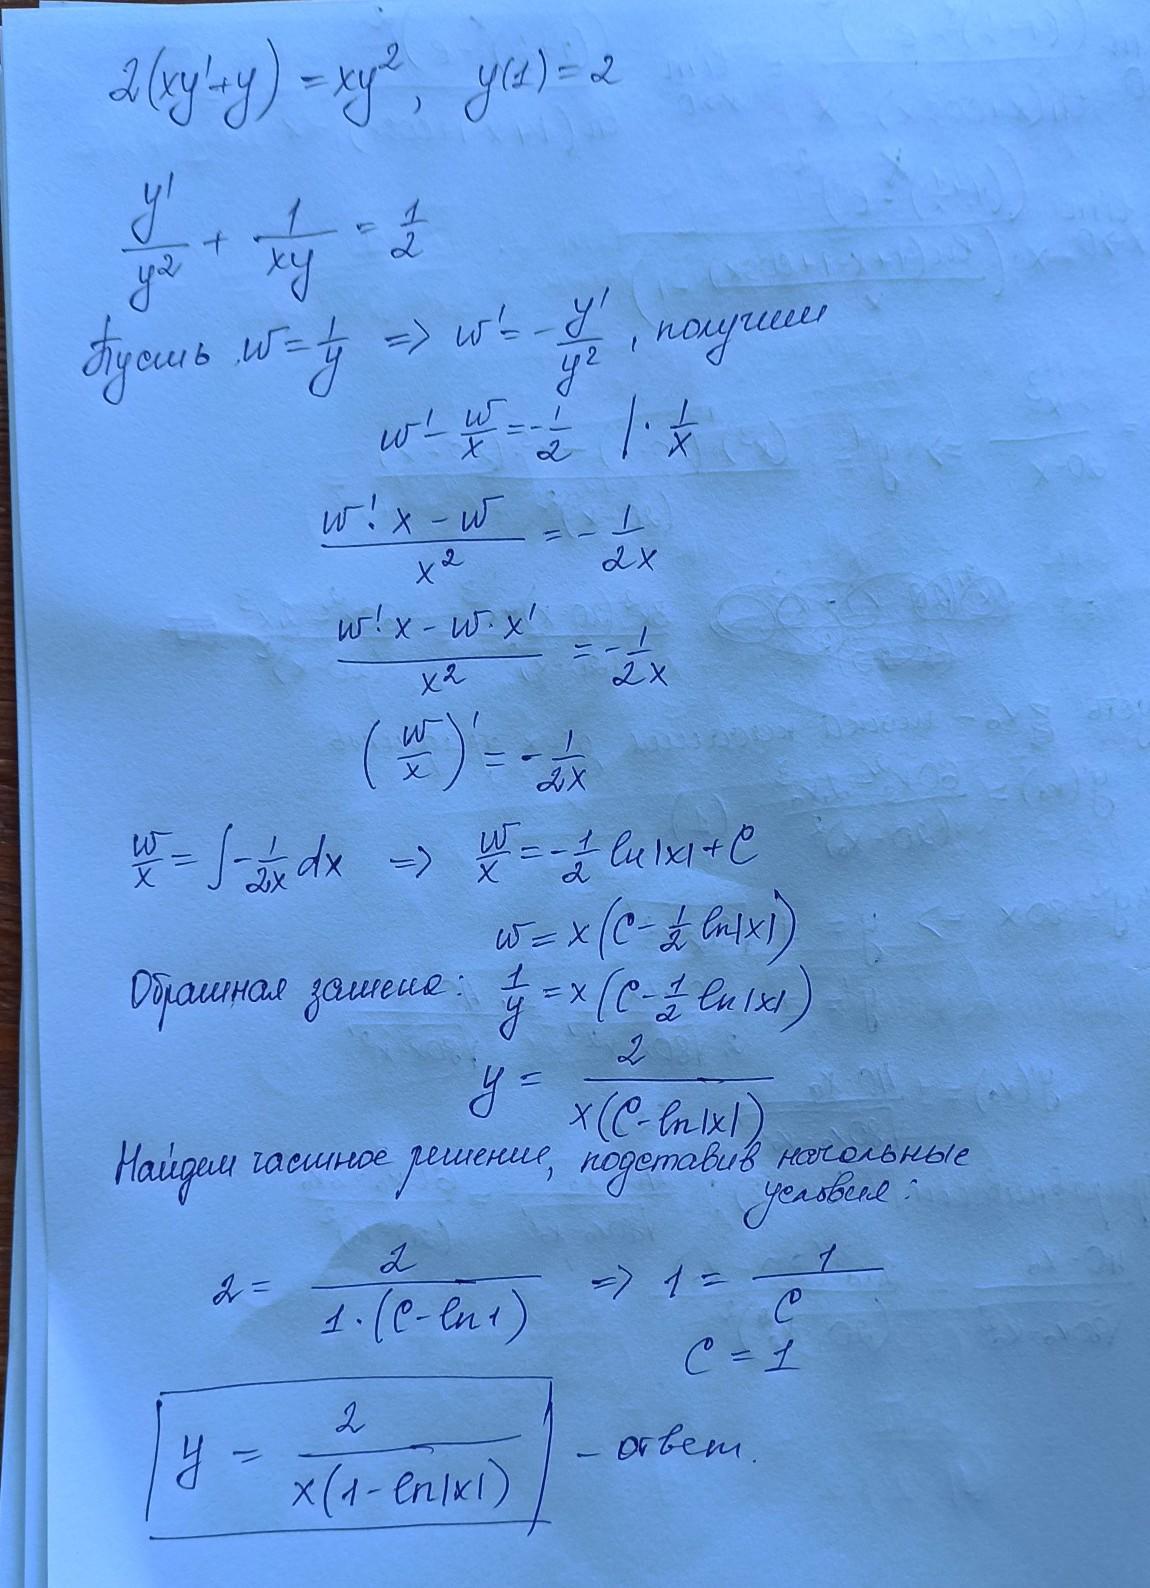 2(xy'+y) = xy², y(1) = 2
y'/y² + 1/(xy) = 1/2
Пусть w = 1/y => w' = -y'/y², получим
w' - w/x = -1/2 | · 1/x
(w'·x - w)/x² = -1/(2x)
(w'·x - w·x')/x² = -1/(2x)
(w/x)' = -1/(2x)
w/x = ∫ -1/(2x) dx => w/x = -1/2 ln|x| + C
w = x(C - 1/2 ln|x|)
Обратная замена: 1/y = x(C - 1/2 ln|x|)
y = 2/(x(C - ln|x|))
Найдем частное решение, подставив начальные
условия:
2 = 2/(1·(C - ln1)) => 1 = 1/C
C = 1
y = 2/(x(1 - ln|x|)) - ответ.